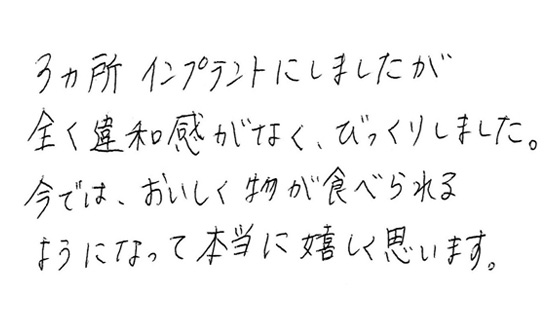 3ヵ所 インプラントにしましたが
全く違和感がなく、びっくりしました。
今では、おいしく物が食べられる
ようになって本当に嬉しく思います。